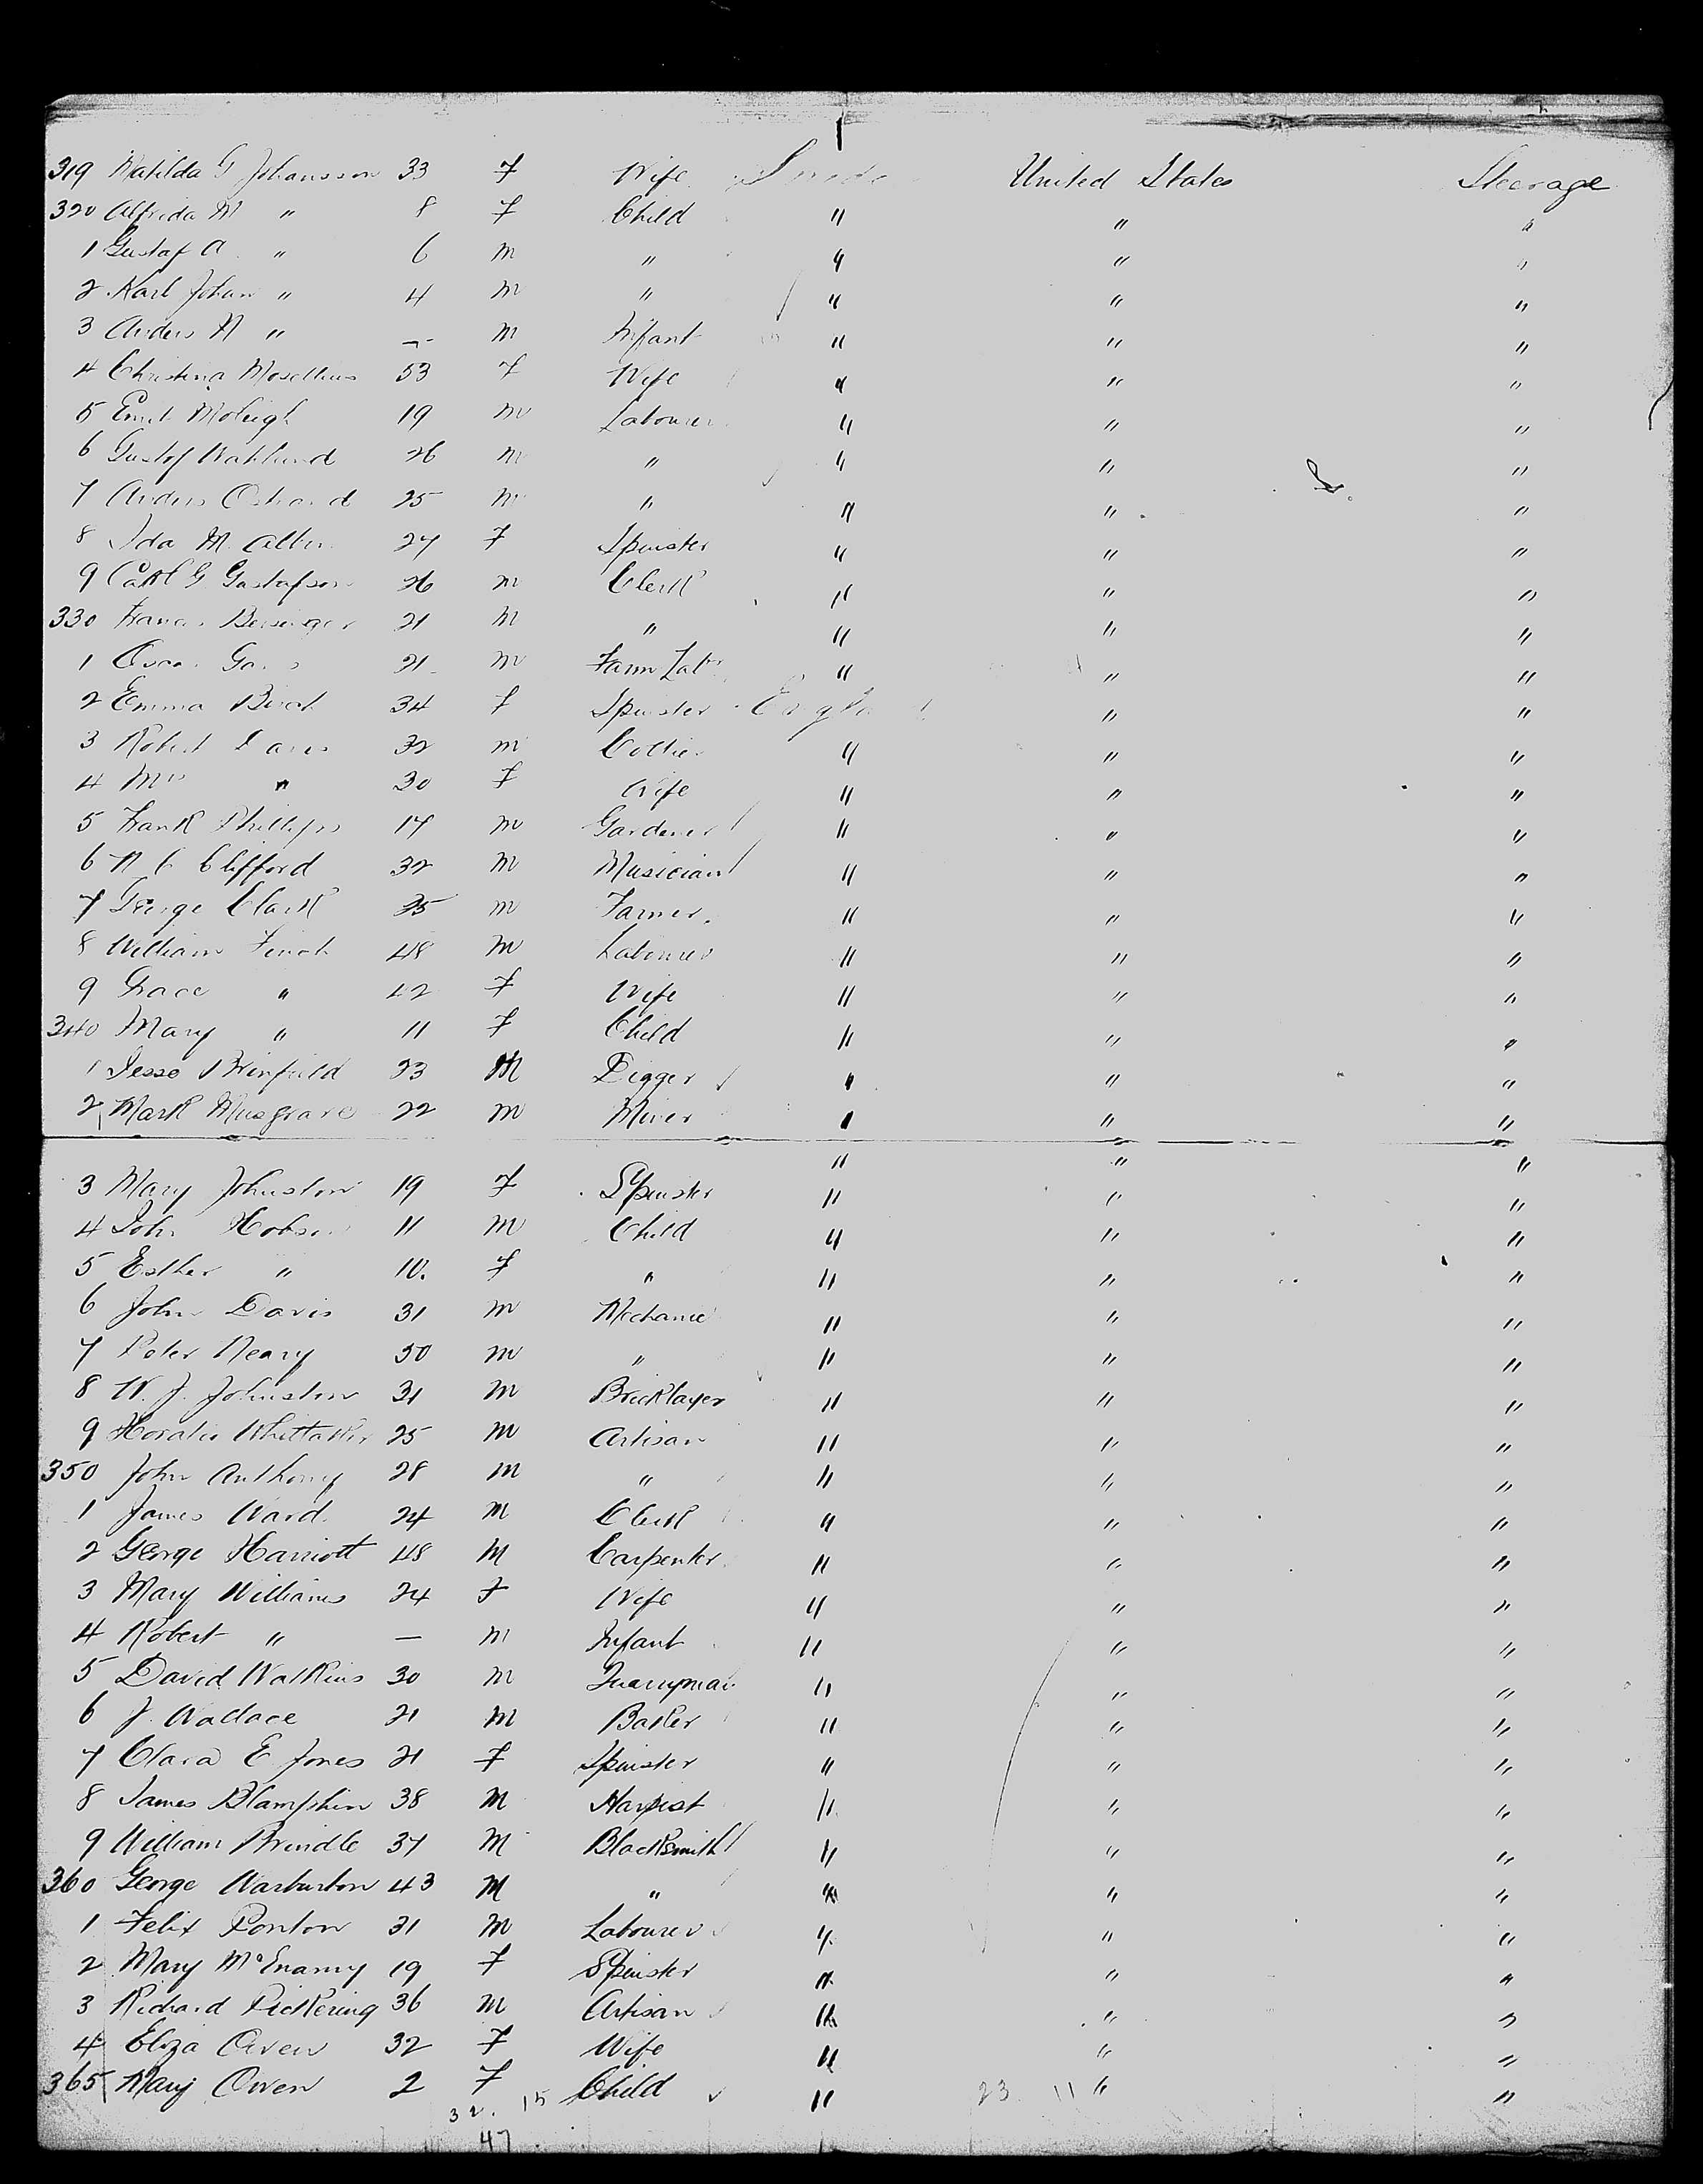 319 Matilda G Johansson 33 F Wife Swede United States Steerage
320 Alfrida M " 8 F Child " " "
1 Gustaf A. " 6 m " " " "
2 Karl Johan " 4 m " " " "
3 Anders A " — m Infant " " "
4 Christina 53 F Wife " " "
5 Emil 19 m Labourer " " "
6 Gustaf Wahlund 26 m " " " "
7 Anders 25 m " " " "
8 Ida M. 27 F Spinster " " "
9 Carl G. Gustafson 26 m Clerk " " "
330 21 m " " " "
1 21 m Farm Labr " " "
2 Emma Birch 34 F Spinster England " "
3 Robert Davis 32 m Collier " " "
4 Mrs " 30 F Wife " " "
5 Frank Phillips 17 m Gardener " " "
6 Clifford 32 m Musician " " "
7 George Clark 25 m Farmer. " " "
8 William Finch 48 m Labourer " " "
9 Grace " 42 F Wife " " "
340 Mary " 11 F Child " " "
1 Jesse 23 M Digger " " "
2 Mark Musgrave 22 m Miner " " "
" " "
3 Mary Johnston 19 F Spinster " " "
4 John Hobson 11 m Child " " "
5 Esther " 10. F " " " "
6 John Davis 31 m Mechanic " " "
7 Peter Neary 50 m " " " "
8 W. J. Johnston 31 m Bricklayer " " "
9 Horatio Whittaker 25 m Artisan " " "
350 John Anthony 28 m " " " "
1 James Ward 24 m Clerk " " "
2 George Harriott 48 M Carpenter " " "
3 Mary Williams 24 F Wife " " "
4 Robert " — m Infant " " "
5 David Watkins 30 m Quarryman " " "
6 J. Wallace 21 m Baker " " "
7 Clara E Jones 21 F Spinster " " "
8 James Blamphin 38 M Harpist " " "
9 William Brindle 37 M Blacksmith " " "
360 George Warburton 43 M " " " "
1 Felix Ponton 31 m Labourer " " "
2 Mary McEnanny 19 F Spinster " " "
3 Richard Pickering 36 m Artisan " " "
4 Eliza Owen 32 F Wife " " "
365 Mary Owen 2 F Child " 23 11 " "
32. 15
47